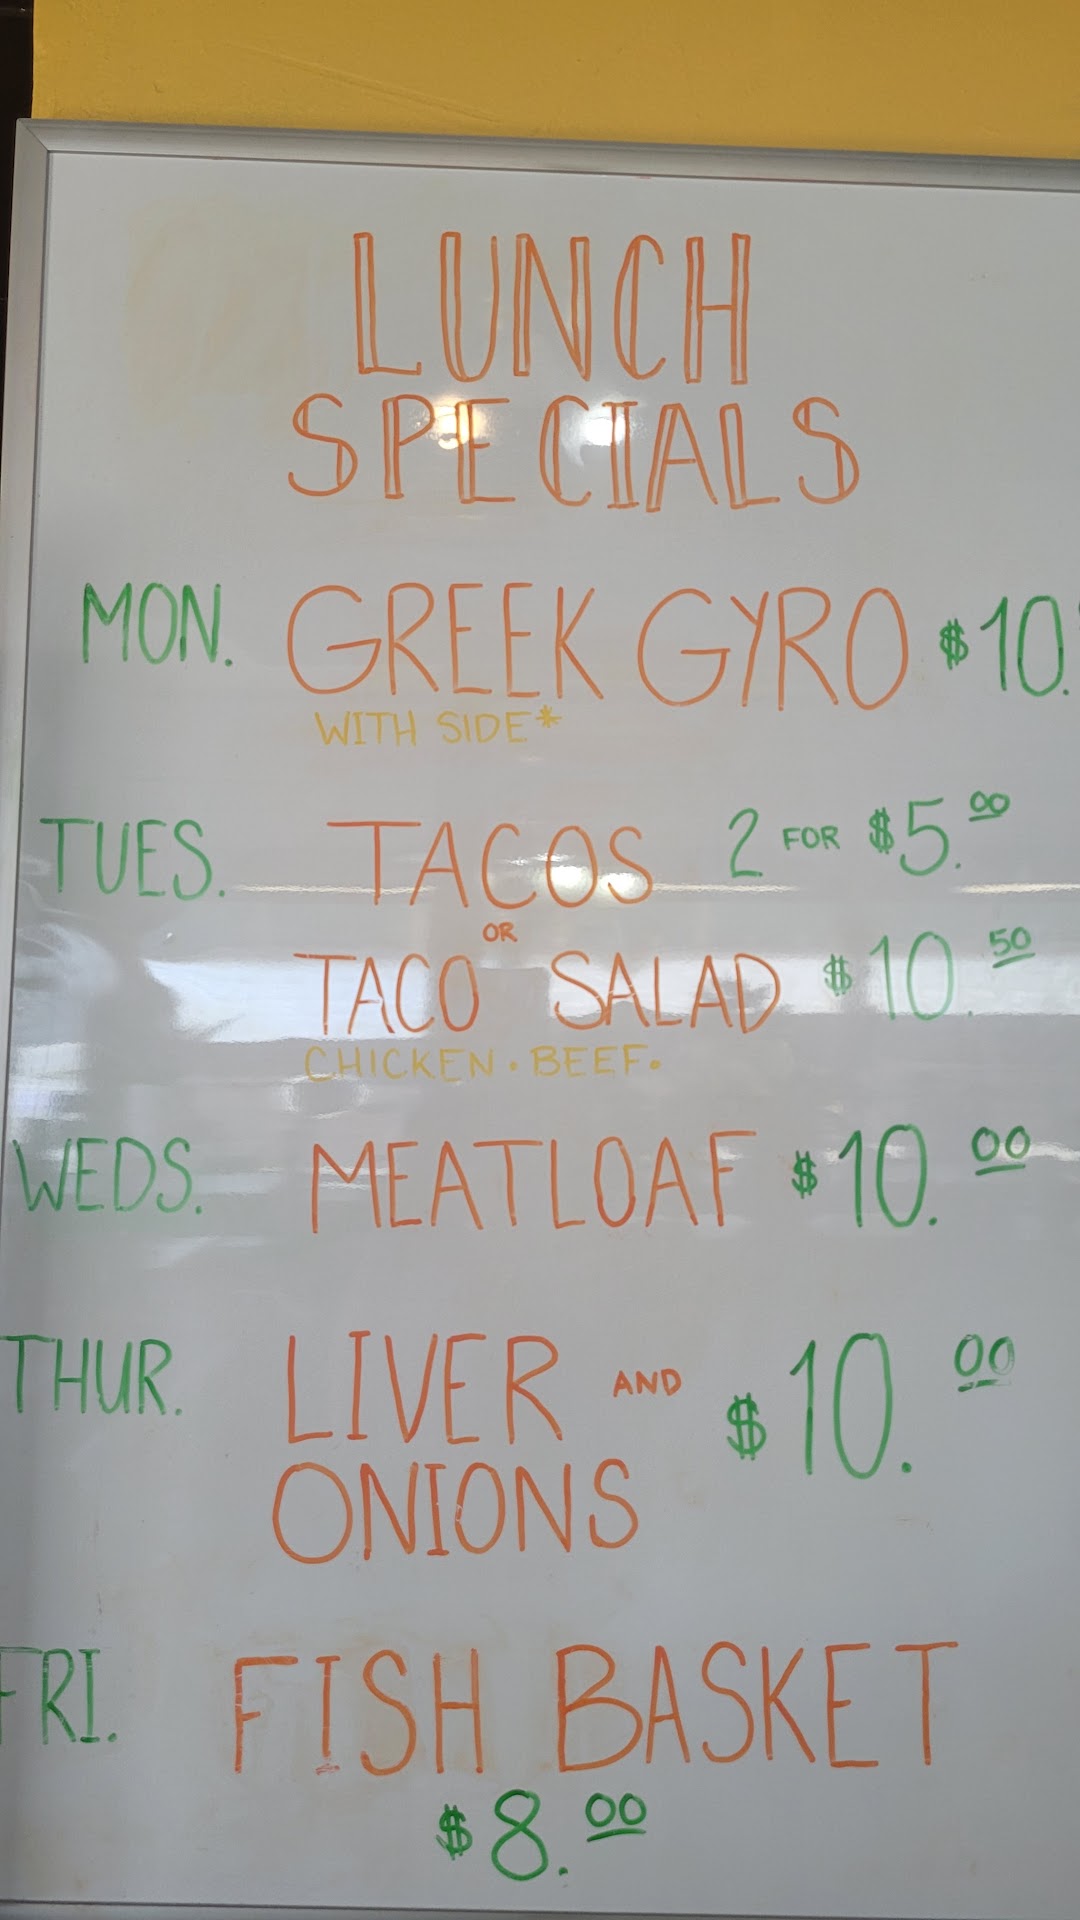 LUNCH
SPECIALS
MON. GREEK GYRO $10.
WITH SIDE*
TUES. TACOS 2 FOR $5.00
OR
TACO SALAD $10.50
CHICKEN • BEEF •
WEDS. MEATLOAF $10.00
THUR. LIVER AND $10.00
ONIONS
FRI. FISH BASKET
$8.00